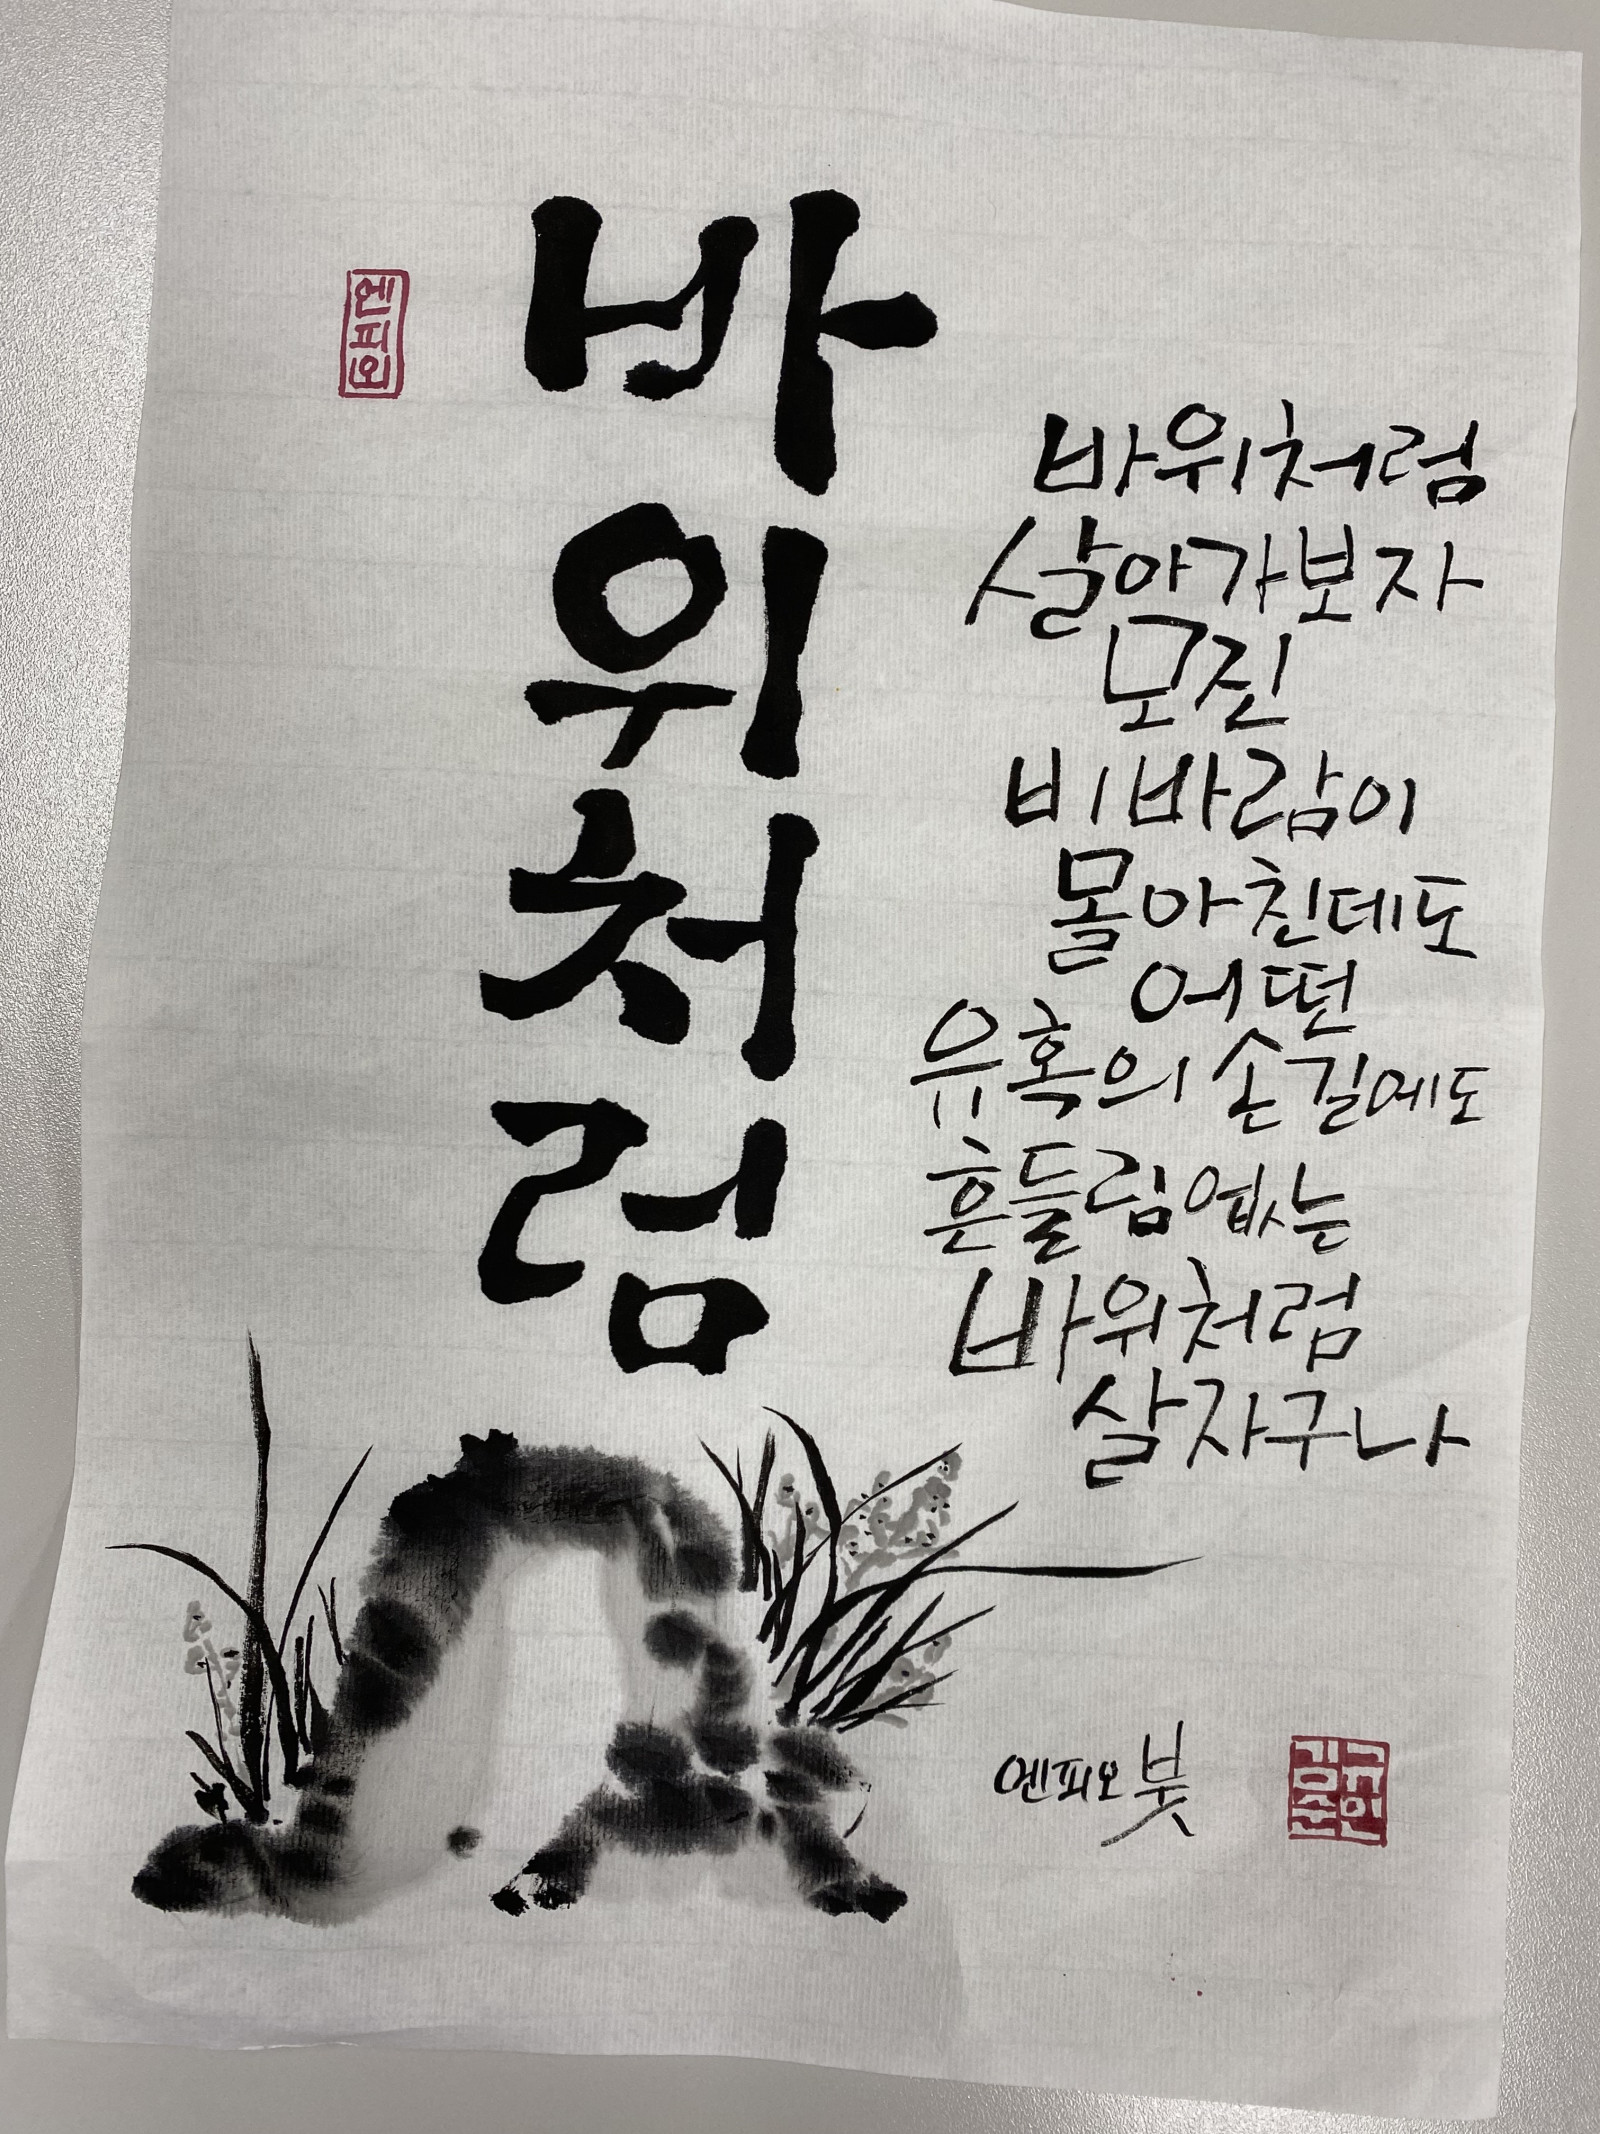 바위처럼
바위처럼
살아가보자
모진
비바람이
몰아친데도
어떤
유혹의 손길에도
흔들림없는
바위처럼
살자구나
엔피오 붓